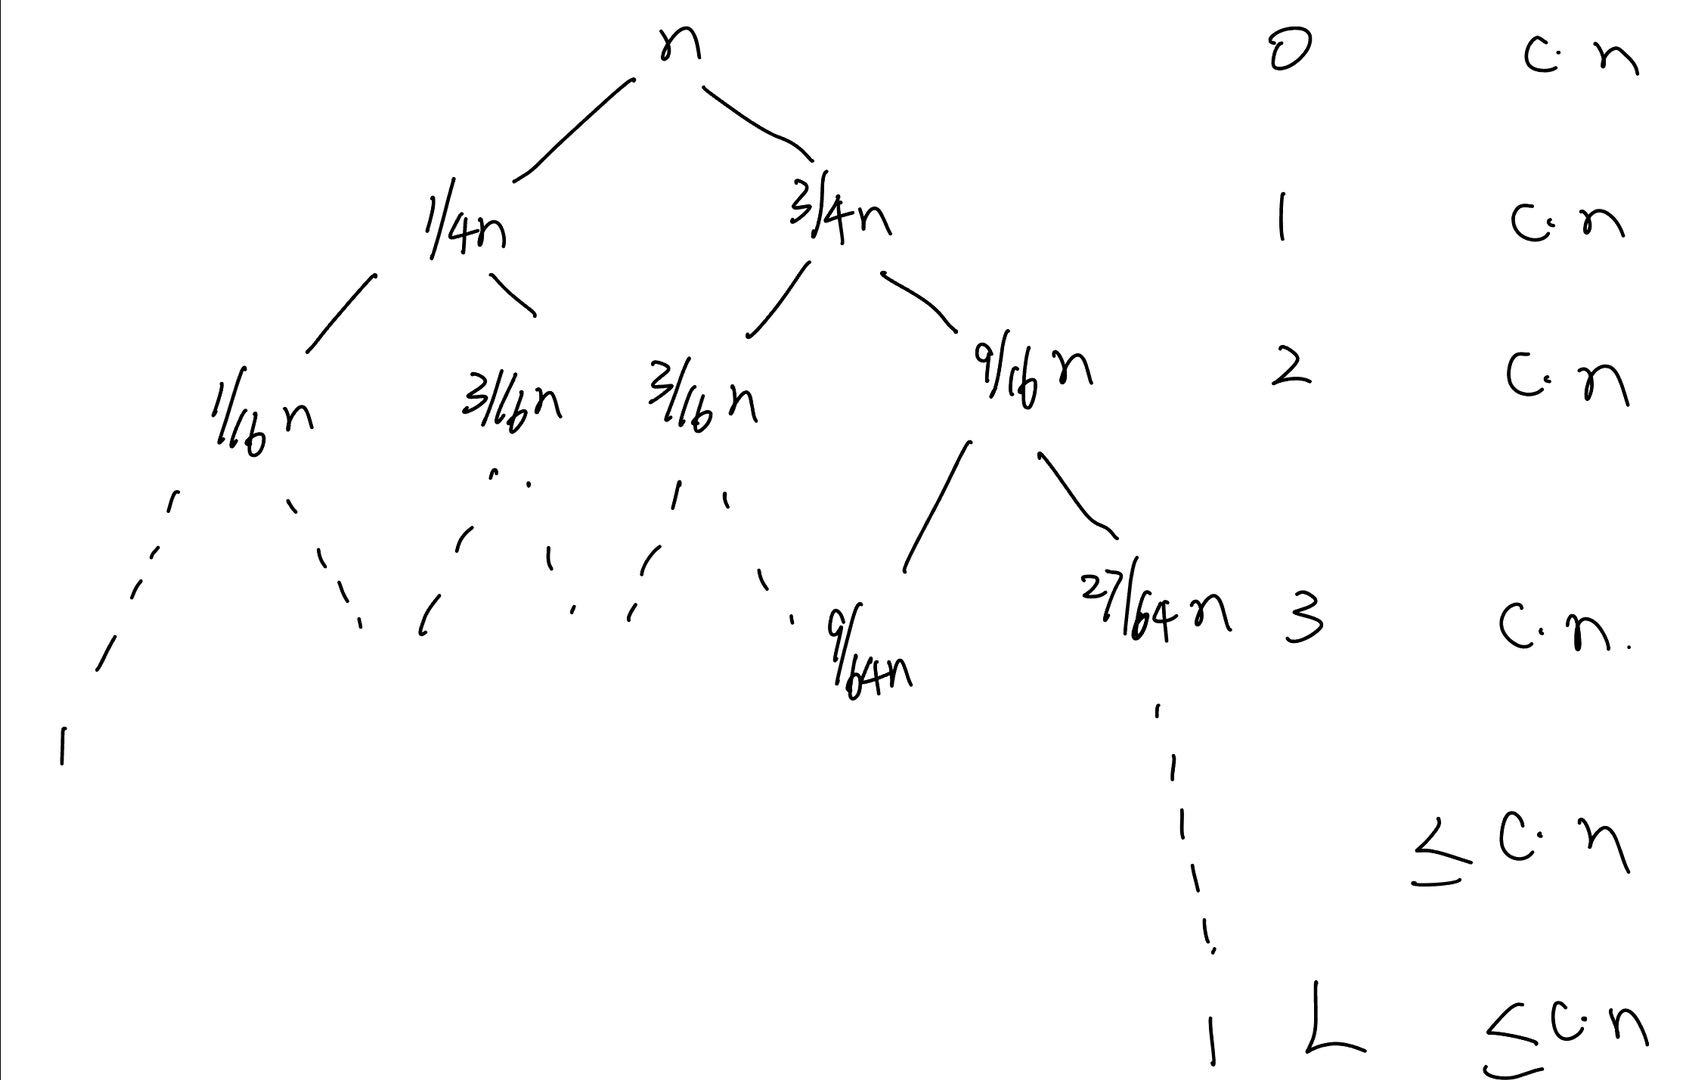 n 0 c·n
1/4n 3/4n 1 c·n
1/16n 3/16n 3/16n 9/16n 2 c·n
9/64n 27/64n 3 c·n.
1
≤ c·n
1 L ≤ c·n